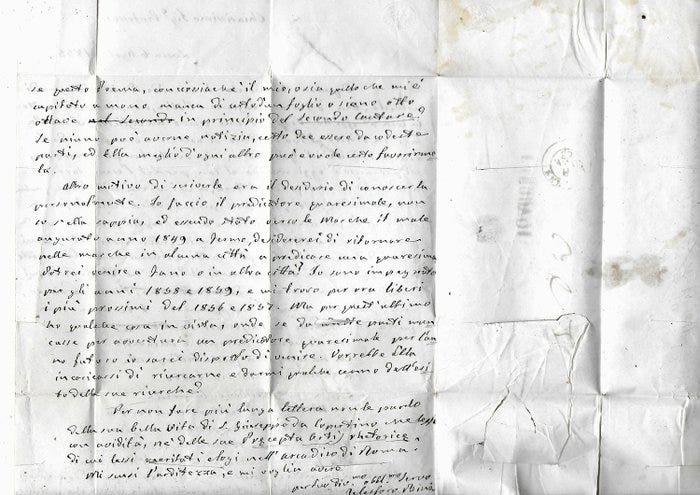 se questo Poema, conciosiachè il mio, o sia quello che mi è
capitato a mano manca di un foglio o siano otto
ottave nel secondo in principio del secondo Cantare?
Se niuno può averne notizia, certo dee essere da codeste
parti, ed Ella meglio d'ogni altro può e vuole certo favorirme
la.
Altro motivo di scriverle era il desiderio di conoscerla
personalmente. Io faccio il predicatore quaresimale, non
so se lla sappia, ed essendo stato verso le Marche il male
augurato anno 1849 a Fermo, desidererei di ritornare
nelle marche in alcuna città a predicare una quaresima
Potrei venire a Fano o in altra città? Io sono impegnato
per gli anni 1858 e 1859, e mi trovo per ora liberi
i più prossimi del 1856 e 1857. Ma per quest'ultimo
ho qualche cosa in vista, onde se da parti man
casse per avventura un predicatore quaresimale per l'an
no futuro io sarei disposto di venire. Vorrebbe Ella
incaricarsi di ricercarne e darmi qualche cenno dell'esi
to delle sue ricerche?
Per non fare più lunga lettera non le parlo
della sua bella vita di S. Giuseppe da Copertino
con avidità, nè delle sue Præcepta Artis rhetoricæ
di cui lessi meritati elogi nell'arcadico di Roma.
Mi scusi l'arditezza, e mi voglia avere
per suo div.mo obbl.mo Servo